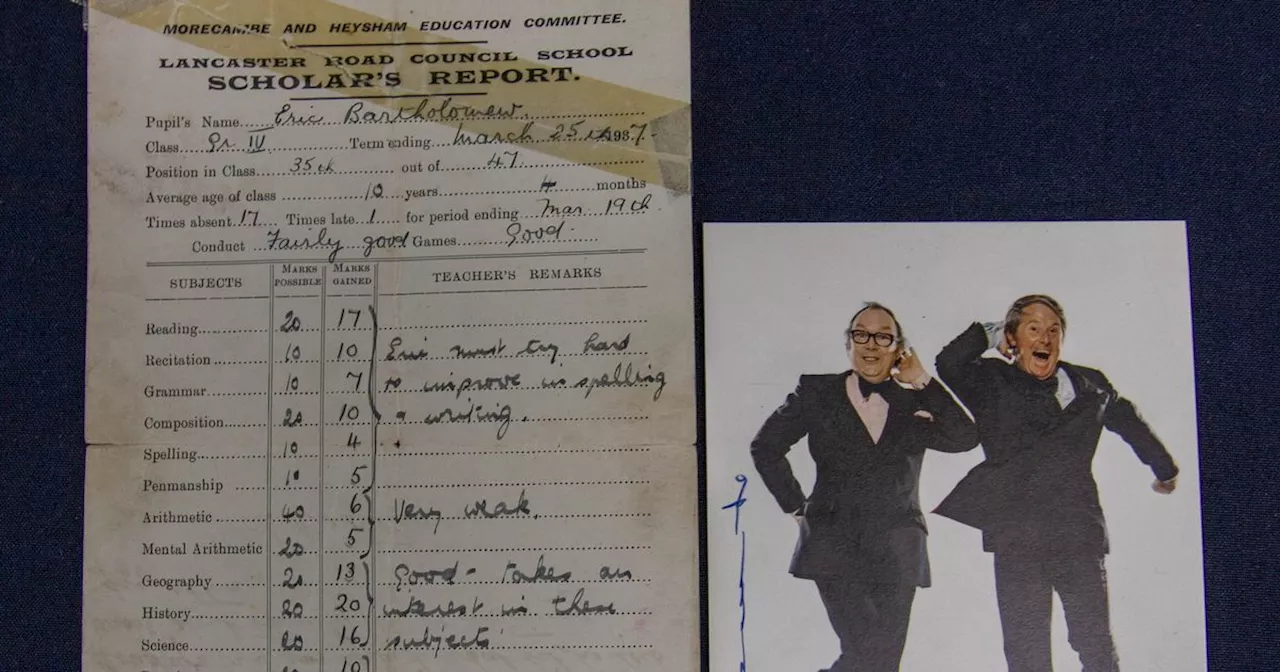 MORECAMBE AND HEYSHAM EDUCATION COMMITTEE.
LANCASTER ROAD COUNCIL SCHOOL
SCHOLAR'S REPORT.
Pupil's Name Eric Bartholomew.
Class Gr IV Term ending March 25th 1937.
Position in Class 35th out of 47
Average age of class 10 years 4 months
Times absent 17 Times late 1 for period ending Mar 19th
Conduct Fairly good Games Good.
SUBJECTS MARKS POSSIBLE MARKS GAINED TEACHER'S REMARKS
Reading 20 17
Recitation 10 10 Eric must try hard
Grammar 10 7 to improve in spelling
Composition 20 10 & writing.
Spelling 10 4
Penmanship 10 5
Arithmetic 40 6 Very weak.
Mental Arithmetic 20 5
Geography 20 13 Good - takes an
History 20 20 interest in these
Science 20 16 subjects
20 10